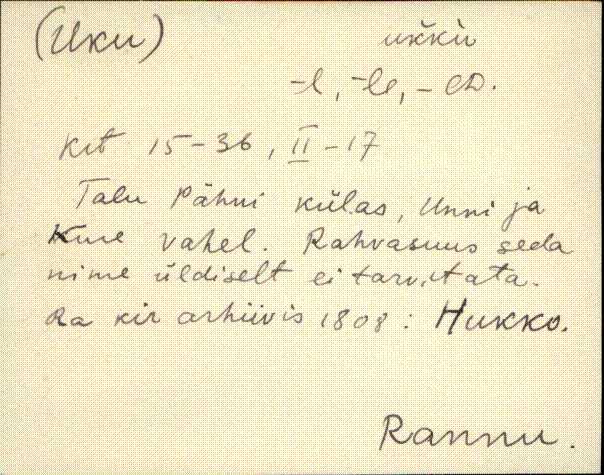 (Uku) ukku
-l, -le, -lD.
Krt 15-36, II-17
Talu Pähni külas, Unni ja
Kure vahel. Rahvasuus seda
nime üldiselt ei tarvitata.
Ra kir arhiivis 1808: Hukko.
Rannu.